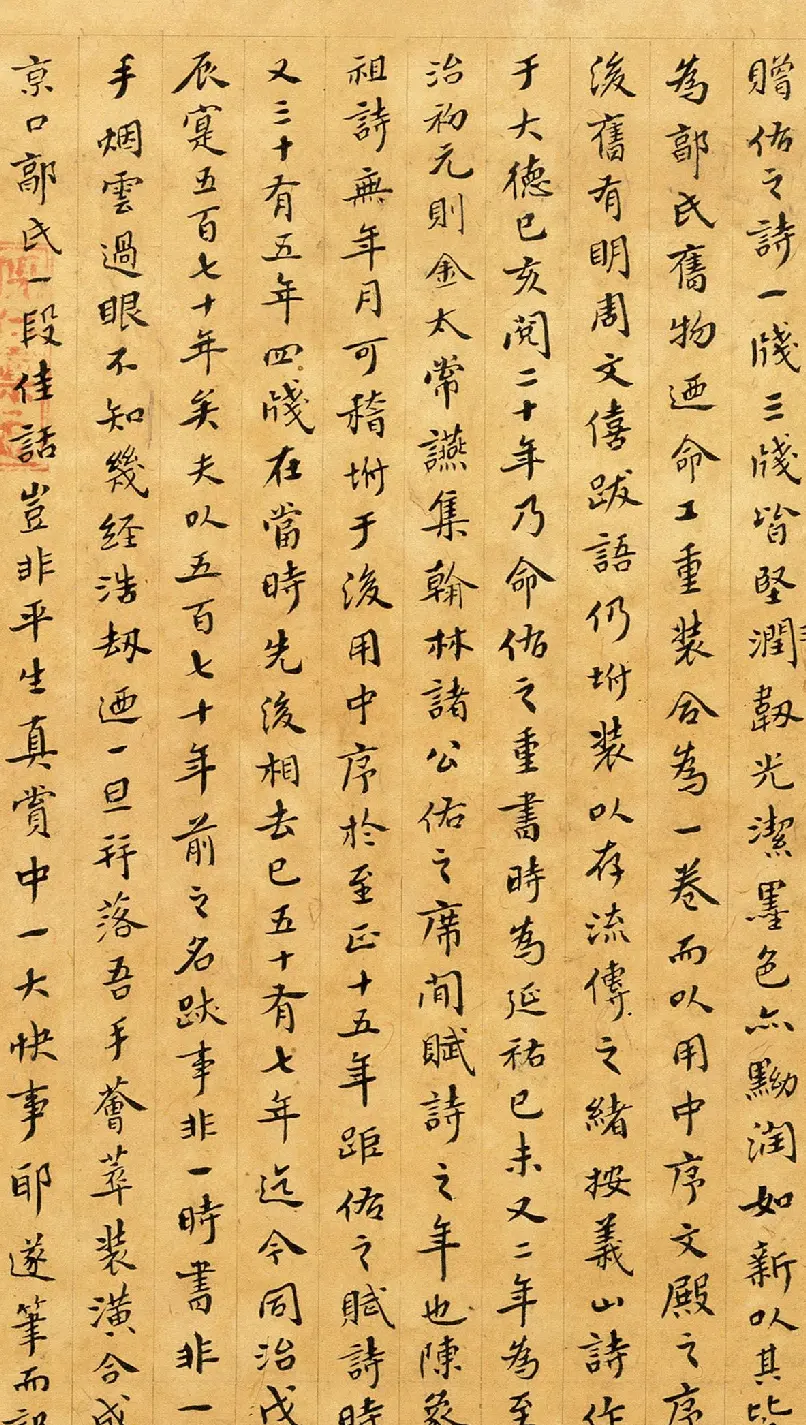 贈佑之詩一牋三牋皆堅潤韌光潔墨色亦黝潤如新以其皆
為郭氏舊物迺命工重裝合為一卷而以用中序文殿之序
後舊有明周文僖跋語仍坿裝以存流傳之緒按義山詩作
于大德己亥閱二十年乃命佑之重書時為延祐己未又二年為至
治初元則金太常讌集翰林諸公佑之席間賦詩之年也陳眾
祖詩無年月可稽坿于後用中序於至正十五年距佑之賦詩時
又三十有五年四牋在當時先後相去已五十有七年迄今同治戊
辰寔五百七十年矣夫以五百七十年前之名跡事非一時書非一
手烟雲過眼不知幾經浩劫迺一旦并落吾手薈萃裝潢合成
京口郭氏一段佳話豈非平生真賞中一大快事耶遂筆而記